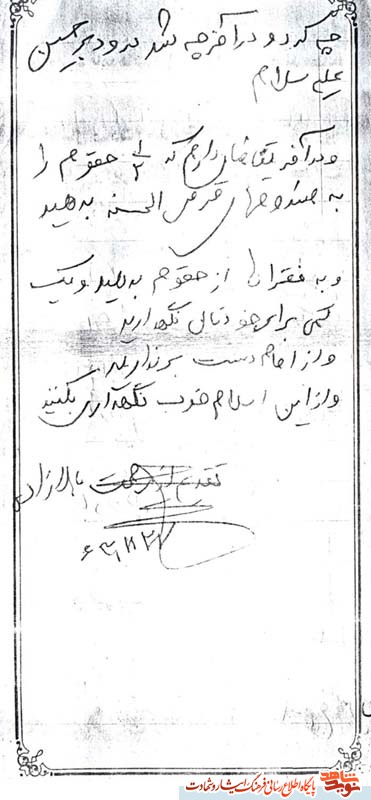 چه کرد و در آخر چه شد درود بر حسین
علیه سلام
و در آخر تقاضا دارم که ۱/۲ حقوقم را
به صندوقهای قرض الحسنه بدهید
و به فقرا از حقوقم بدهید و یک
کمی برای خودتان نگهدارید
و از امام دست برندارید
و از این اسلام خوب نگهداری بکنید
تقدیم از
نوید شاهد
پایگاه اطلاع رسانی فرهنگ ایثار و شهادت